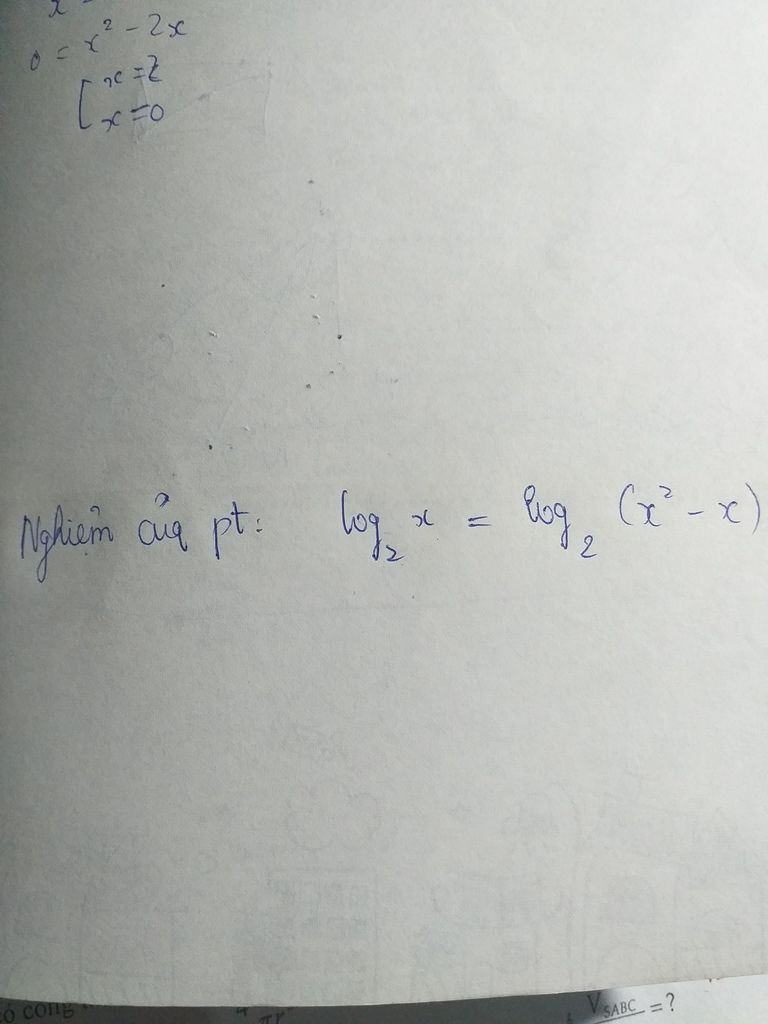 0 = x² - 2x
[x = 2
x = 0
Nghiệm của pt: log₂ x = log₂ (x² - x)
V_SABC = ?